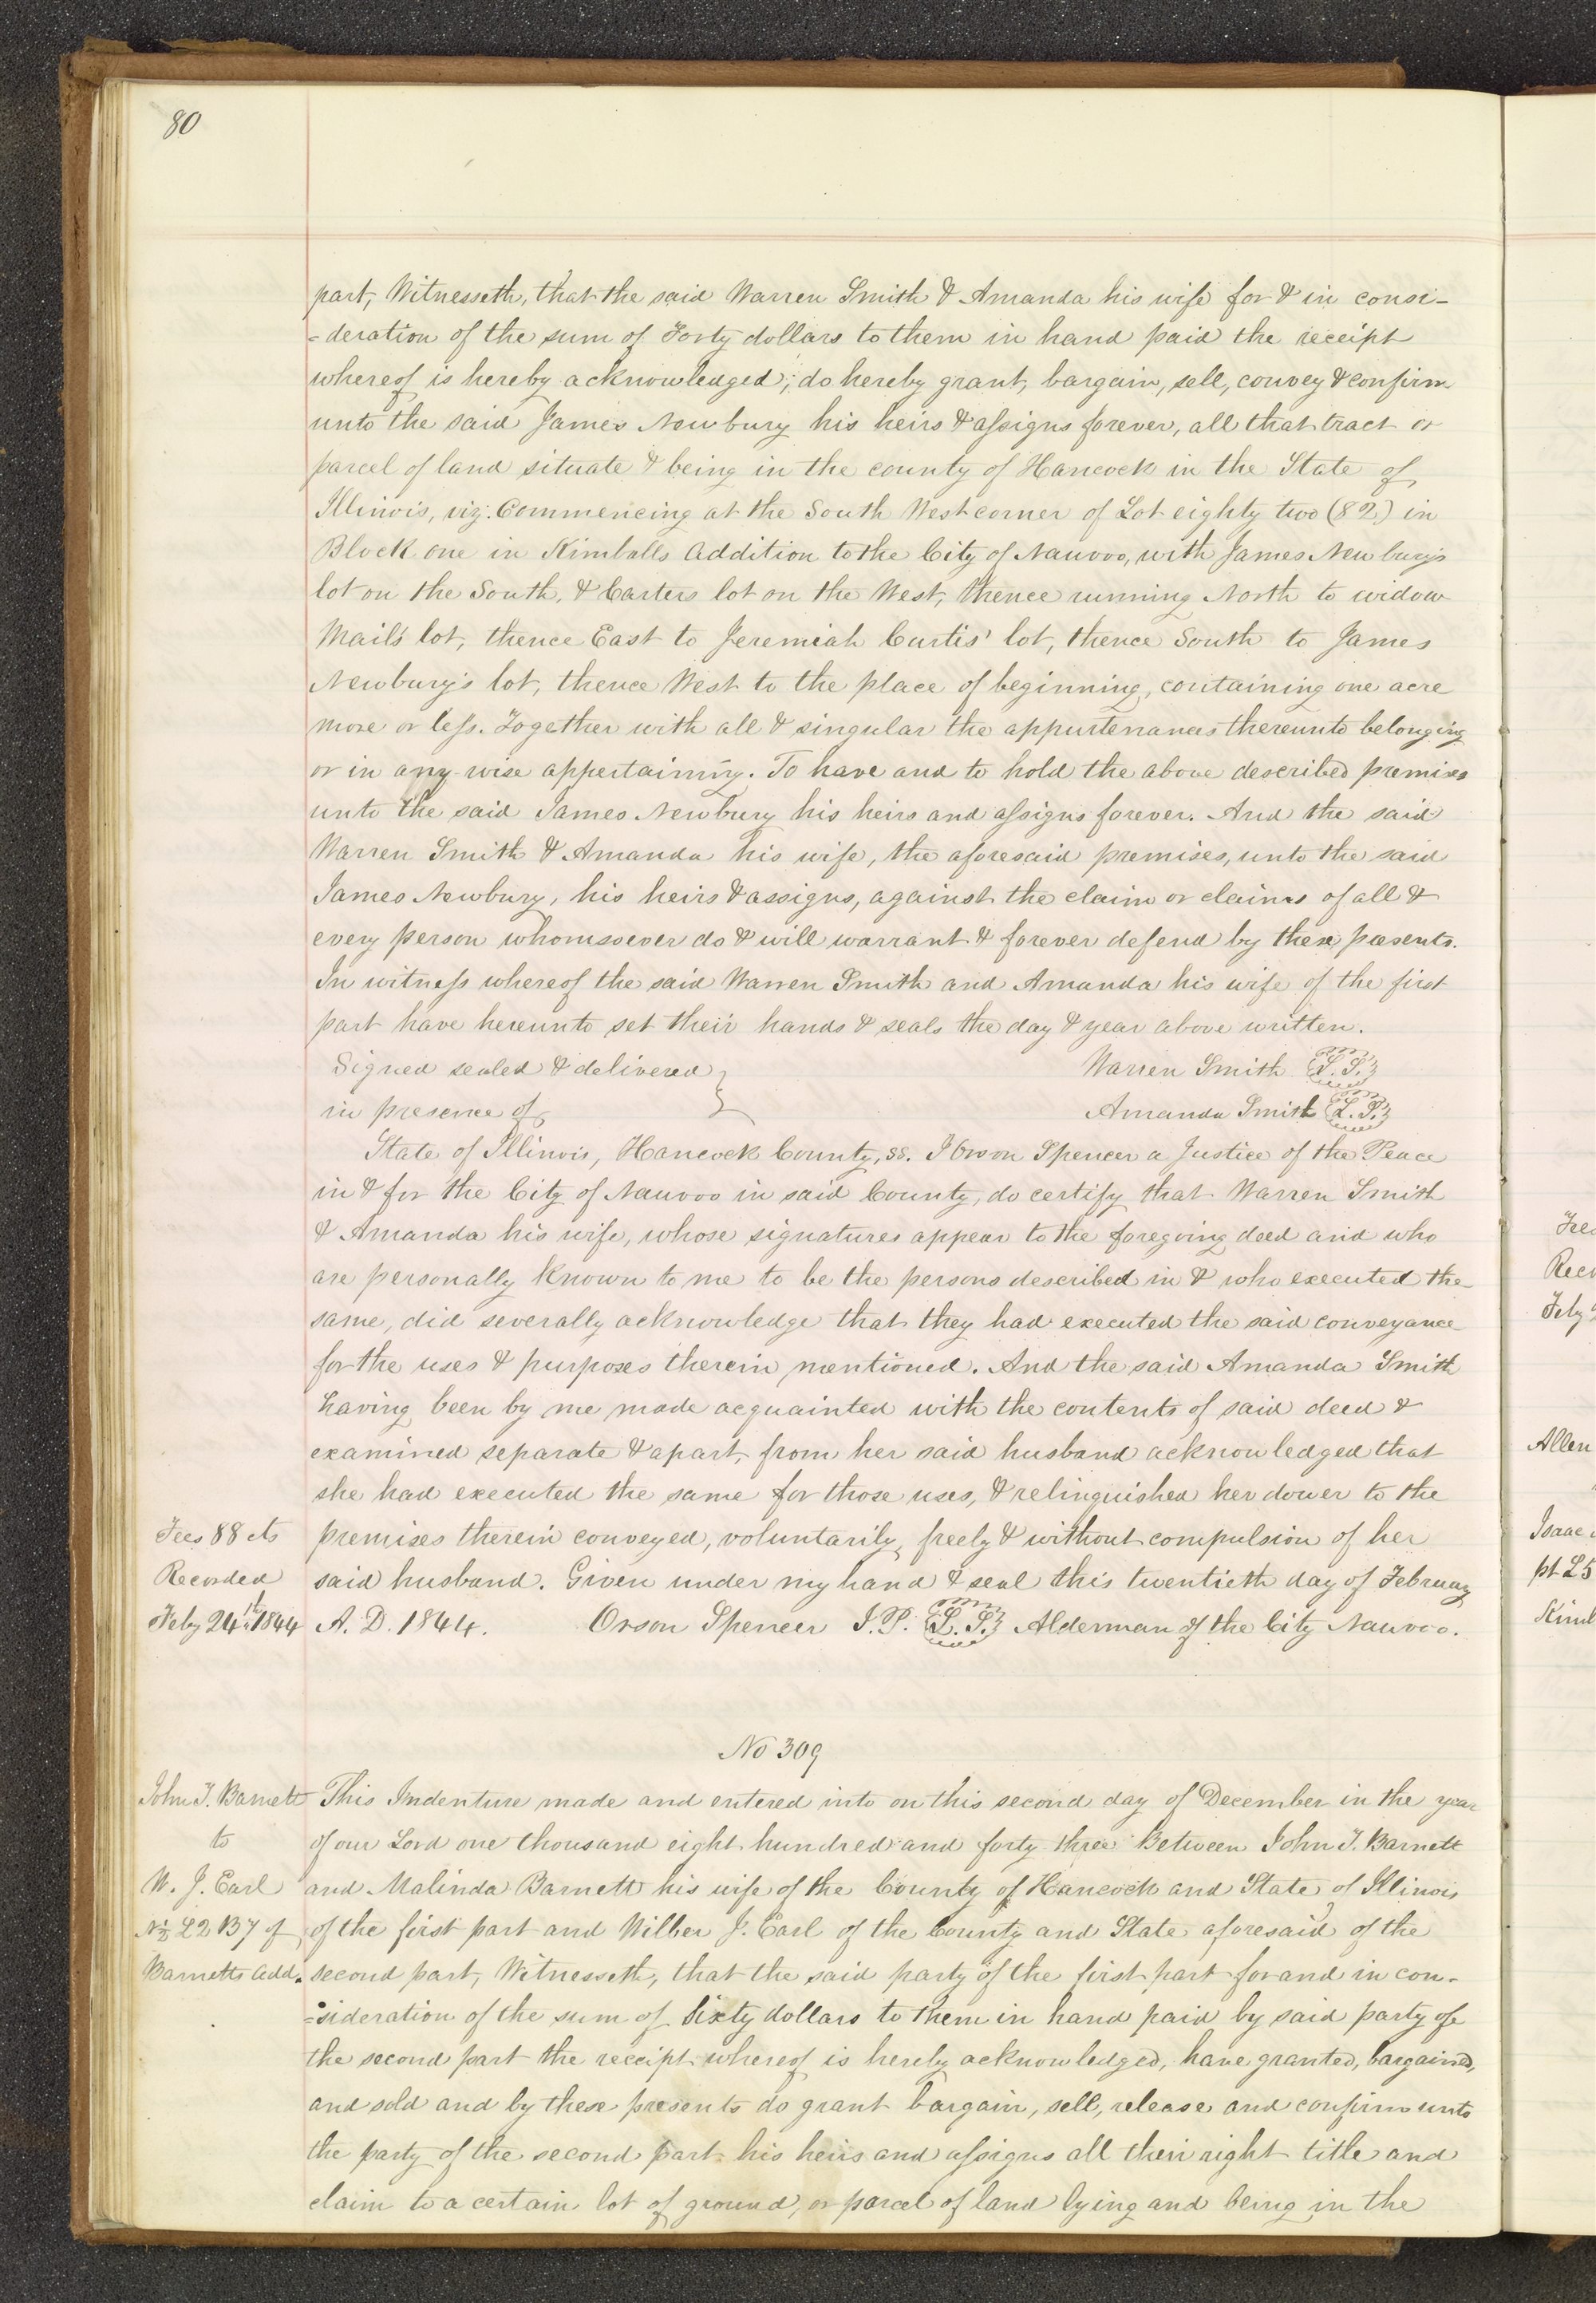 80
part, Witnesseth, that the said Warren Smith & Amanda his wife for & in consi-
-deration of the sum of Forty dollars to them in hand paid the receipt
whereof is hereby acknowledged; do hereby grant, bargain, sell, convey & confirm
unto the said James Newbury his heirs & assigns forever, all that tract or
parcel of land situate & being in the county of Hancock in the State of
Illinois, viz: Commencing at the South West corner of Lot eighty two (82) in
Block one in Kimballs Addition to the City of Nauvoo, with James Newbury's
lot on the South, & Carters lot on the West, thence running North to widow
Mail's lot, thence East to Jeremiah Curtis' lot, thence South to James
Newbury's lot, thence West to the place of beginning, containing one acre
more or less. Together with all & singular the appurtenances thereunto belonging
or in any wise appertaining. To have and to hold the above described premises
unto the said James Newbury his heirs and assigns forever. And the said
Warren Smith & Amanda his wife, the aforesaid premises, unto the said
James Newbury, his heirs & assigns, against the claim or claims of all &
every person whomsoever do & will warrant & forever defend by these presents.
In witness whereof the said Warren Smith and Amanda his wife of the first
part have hereunto set their hands & seals the day & year above written.
Signed sealed & delivered } Warren Smith L.S.
in presence of Amanda Smith L.S.
State of Illinois, Hancock County, ss. I Orson Spencer a Justice of the Peace
in & for the City of Nauvoo in said County, do certify that Warren Smith
& Amanda his wife, whose signatures appear to the foregoing deed and who
are personally known to me to be the persons described in & who executed the
same, did severally acknowledge that they had executed the said conveyance
for the uses & purposes therein mentioned. And the said Amanda Smith
having been by me made acquainted with the contents of said deed &
examined separate & apart, from her said husband acknowledged that
she had executed the same for those uses, & relinquished her dower to the
Fees 88 cts premises therein conveyed, voluntarily, freely & without compulsion of her
Recorded said husband. Given under my hand & seal this twentieth day of February
Feby 24th 1844 A. D. 1844. Orson Spencer J.P. L.S. Alderman of the City Nauvoo.
No 309
John T. Barnett This Indenture made and entered into on this second day of December in the year
to of our Lord one thousand eight hundred and forty three Between John T. Barnett
W. J. Earl and Malinda Barnett his wife of the County of Hancock and State of Illinois
N½ L2 B7 of of the first part and Wilber J. Earl of the County and State aforesaid of the
Barnetts Add. second part, Witnesseth, that the said party of the first part for and in con-
-sideration of the sum of Sixty dollars to them in hand paid by said party of
the second part the receipt whereof is hereby acknowledged, have granted, bargained,
and sold and by these presents do grant bargain, sell, release and confirm unto
the party of the second part his heirs and assigns all their right title and
claim to a certain lot of ground, or parcel of land lying and being in the
Allen
Isaac
pt L5